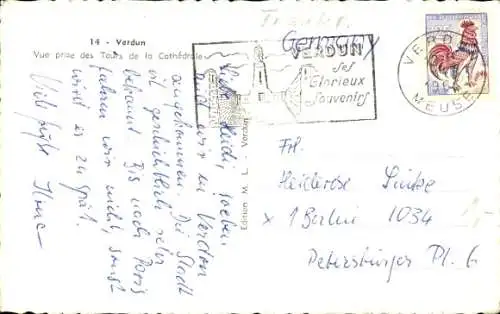 14 - Verdun
Vue prise des Tours de la Cathédrale
Germany
VERDUN
Ses
Glorieux
Souvenirs
VERDUN
MEUSE
Liebe Heidi, soeben
sind wir in Verdun
angekommen. Die Stadt
ist geschichtlich sehr
bekannt. Bis nach Paris
fahren wir nicht, sonst
wird es zu spät.
Viele Grüße
Edition M. L. - Verdun
Frl.
Heiderose
x 1 Berlin 1034
Petersburger Pl. 6